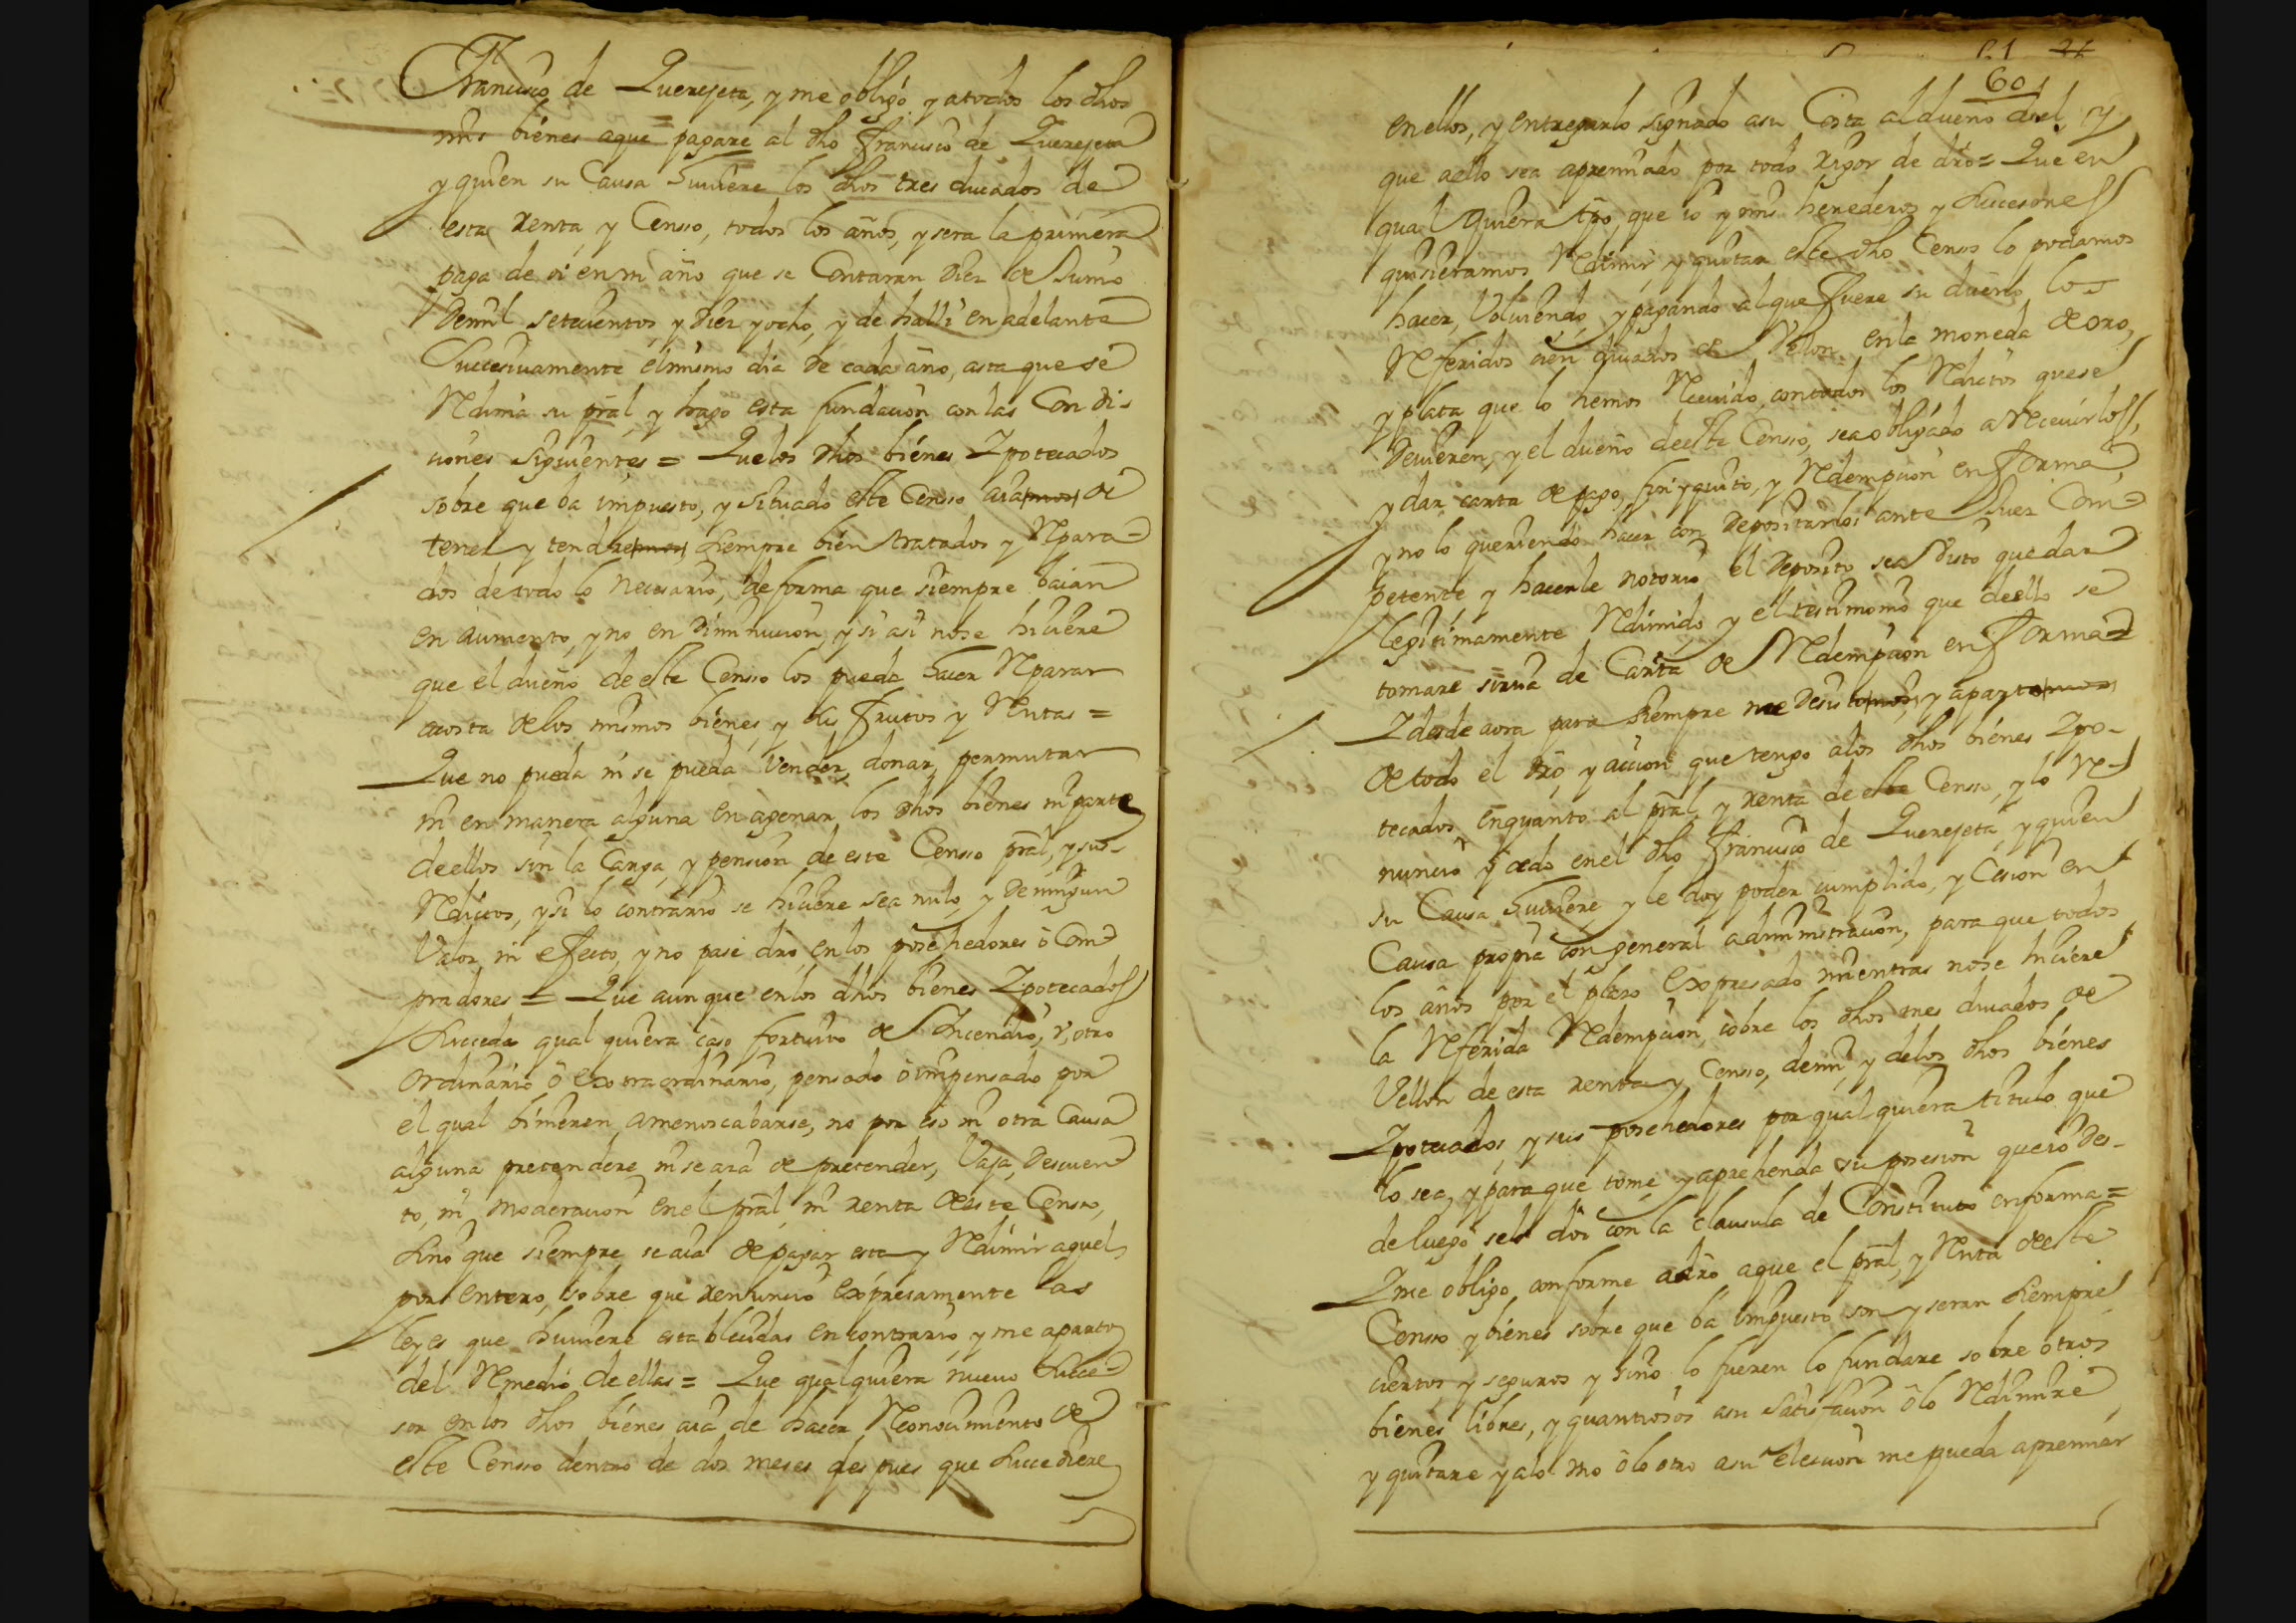 Francisco de Querejeta, y me obligo y a todos los dhos
mis bienes aque pagare al dho Francisco de Querejeta
y quien su Causa huuiere los dhos tres ducados de
esta renta, y Censso, todos los años, y sera la primera
paga de oi en un año que se Contaran Diez de Junio
Demil setecientos, y Diez y ocho, y de halli en adelante
Succesiuamente el mismo dia de cada año, asta que se
Redima su pral, y hago esta fundacion con las Condi-
ciones siguientes = Que los dhos bienes Ypotecados
sobre que ba impuesto, y situado este Censso aia de
tener y tendre siempre bien tratados y Repara-
dos de todo lo necesario, de forma que siempre baian
en aumento, y no en diminucion, y si asi nose hiciere
que el dueño de este Censso los pueda hacer Reparar
acosta de los mismos bienes, y sus frutos y Rentas =
Que no pueda ni se pueda Vender, donar, permutar
ni en manera alguna en agenar los dhos bienes ni parte
de ellos sin la Carga, y pension de este Censso pral, y sus
Reditos, y si lo contrario se hiciere sea nulo, y De ningun
Valor, ni efecto, y no pase dro, en los posehedores ò Com-
pradores = Que aunque en los dhos bienes Ypotecados
succeda qual quiera caso fortuito de Incendio, ù, otro
ordinario, ò extraordinario, pensado ò impensado por
el qual binieren amenoscabarse, no por eso ni otra Causa
alguna pretendere, ni se ara de pretender, Vaja, Descuen-
to, ni moderacion en el pral, ni renta de este Censso,
sino que siempre se aia de pagar esta y Redimir aquel
por entero, sobre que renuncio expresamente las
leyes que huuiere establecidas en contrario, y me aparto
del Remedio de ellas = Que qualquiera nueuo succe-
sor en los dhos bienes aia de hacer Reconocimiento de
este Censso dentro de dos meses despues que succediere
60
en ellos, y entregarlo signado asu Costa al dueño del, y
que aello sea apremiado por todo rigor de dro = Que en
qual quiera tpo, que io y mis herederos y succesores
quisieramos Redimir, y quitar este dho Censo lo podamos
hacer, Voluiendo, y pagando al que fuere su dueño, los
Referidos cien ducados de Vellon en la moneda de oro,
y plata que lo hemos Receuido, contodos los Reditos que se
Deuieren, y el dueño de este Censso, sea obligado a Receuirlos,
y dar carta de pago, fin y quito, y Redempcion en forma,
y no lo queriendo hacer con Depositarlos ante Juez Com-
petente y hacerle notorio el Deposito sea Visto quedar
legitimamente Redimido, y el testimonio que de ello se
tomare sirua de Carta de Redempcion en forma =
Y desde aora para siempre me Desisto, y aparto
de todo el dro, y accion que tengo alos dhos bienes Ypo-
tecados enquanto al pral, y renta de este Censso, y lo Re-
nuncio y cedo en el dho Francisco de Querejeta, y quien
su Causa huuiere y le doy poder cumplido, y Cesion en
Causa propia con general administracion, para que todos
los años por el plazo Expresado mientras nose hiciere
la Referida Redempcion, cobre los dhos tres ducados de
Vellon de esta renta y Censso, demi, y delos dhos bienes
Ypotecados, y sus posehedores por qual quiera titulo que
lo sea, y para que tome y aprehenda su posesion quiero des-
de luego sela doi con la clausula de Constituto en forma =
Y me obligo, conforme adro aque el pral, y Renta de este
Censso y bienes sobre que ba impuesto son y seran siempre
ciertos, y seguros y sino lo fueren lo fundare sobre otros
bienes libres, y quantiosos asu satisfacion ò lo Redimire,
y quitare y alo uno ò lo otro asu eleccion me pueda apremiar